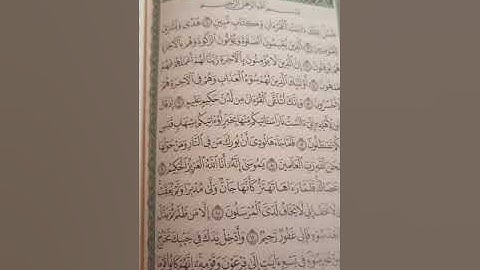 بسم الله الرحمن الرحيم
طس تلك ءايات القرءان وكتاب مبين ۝ هدى وبشرى
للمؤمنين ۝ الذين يقيمون الصلوة ويؤتون الزكوة وهم بالآخرة
هم يوقنون ۝ إن الذين لا يؤمنون بالآخرة زينا لهم أعمالهم فهم
يعمهون ۝ أولئك الذين لهم سوء العذاب وهم في الآخرة هم
الأخسرون ۝ وإنك لتلقى القرءان من لدن حكيم عليم ۝ إذ قال
موسى لأهله إني ءانست نارا سئاتيكم منها بخبر أو ءاتيكم بشهاب قبس
لعلكم تصطلون ۝ فلما جاءها نودي أن بورك من في النار ومن حولها
وسبحن الله رب العالمين ۝ يموسى إنه أنا الله العزيز الحكيم ۝
وألق عصاك فلما رءاها تهتز كأنها جان ولى مدبرا ولم يعقب
يموسى لا تخف إني لا يخاف لدي المرسلون ۝ إلا من ظلم ثم بدل
حسنا بعد سوء فإني غفور رحيم ۝ وأدخل يدك في جيبك تخرج
بيضاء من غير سوء في تسع ءايات إلى فرعون وقومه إنهم كانوا قوما